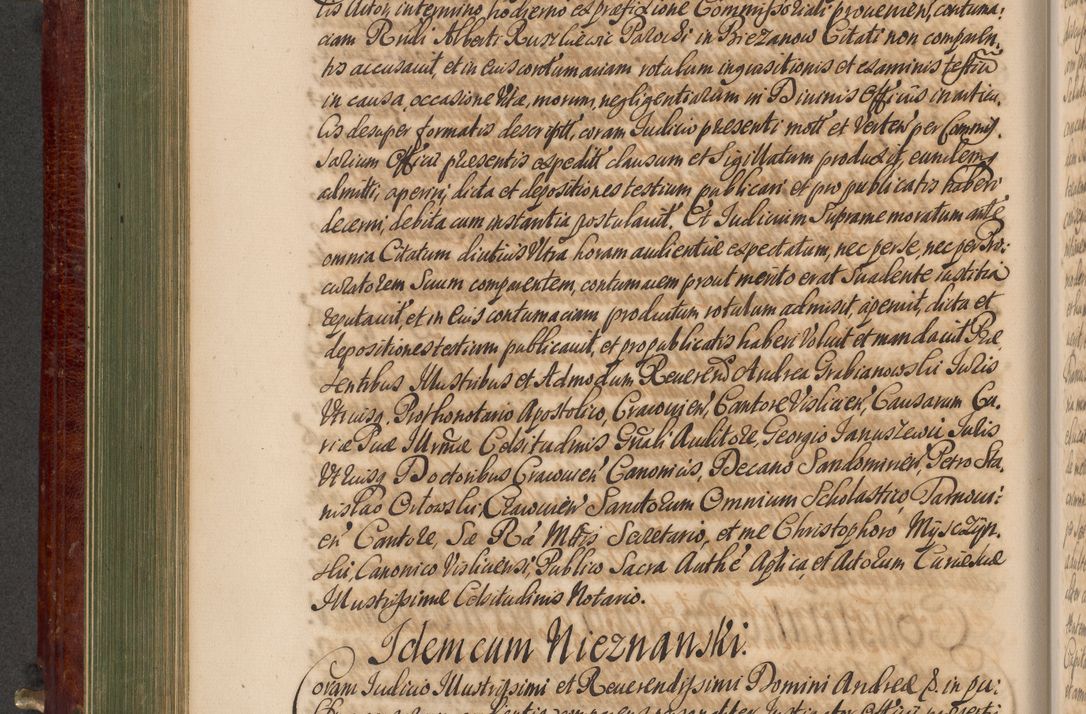 tis Actor, in termino hodierno ex præfixione Commissoriali proveniens, contuma:
ciam Rndi Alberti Ruszkiewic Parochi in Biezanow Citati non comparen,
tis accusavit, et in eius contumaciam rotulum inquisitionis et examinis testiu
in causa, occasione Vitæ, morum, negligentiarum in Divinis Officiis in articu,
lis desuper formatis descript', coram Iudicio præsenti mot' et Verten' per Commis,
sarium Officii præsentis expedit' clausum et Sigillatum produxit, eundemq
admitti, aperiri, dicta et depositiones testium publicari et pro publicatis haberi
decerni, debita cum instantia postulavit. Et Iudicium Supramemoratum ante
omnia Citatum diutius Ultra horam audientiæ expectatum, nec per se, nec per Pro:
curatorem Suum comparentem, contumacem prout merito erat Suadente iustitia
reputavit, et in Eius contumaciam productum rotulum admisit, aperuit, dicta et
depositiones testium publicavit, et pro publicatis haberi Voluit et mandavit Præ
sentibus Illustribus et Admodum Reverend' Andrea Grabianowski Iuris
Utriusq, Prothonotario Apostolico, Cracovien', Cantore Vislicien', Causarum Cu,
riæ Suæ Illrmæ Celsitudinis Gnali Auditore, Georgio Januszewic Iuris
Utriusq Doctoribus Cracovien' Canonicis, Decano Sandomirien', Petro Sta
nislao Orlowski, Cracovien' Sanctorum Omnium Scholastico, Tarnovi:
en' Cantore, Sæ Ræ Mttis Secretario, et me Christophoro Mysczyn
ski, Canonico Visliciensi, Publico Sacra Authe' Aplica, et Actorum Curiæ Suæ
Illustrissimæ Celsitudinis Notario.
Idem cum Nieznanski.
Coram Iudicio Illustrissimi et Reverendissimi Domini Andreæ &. in cu: